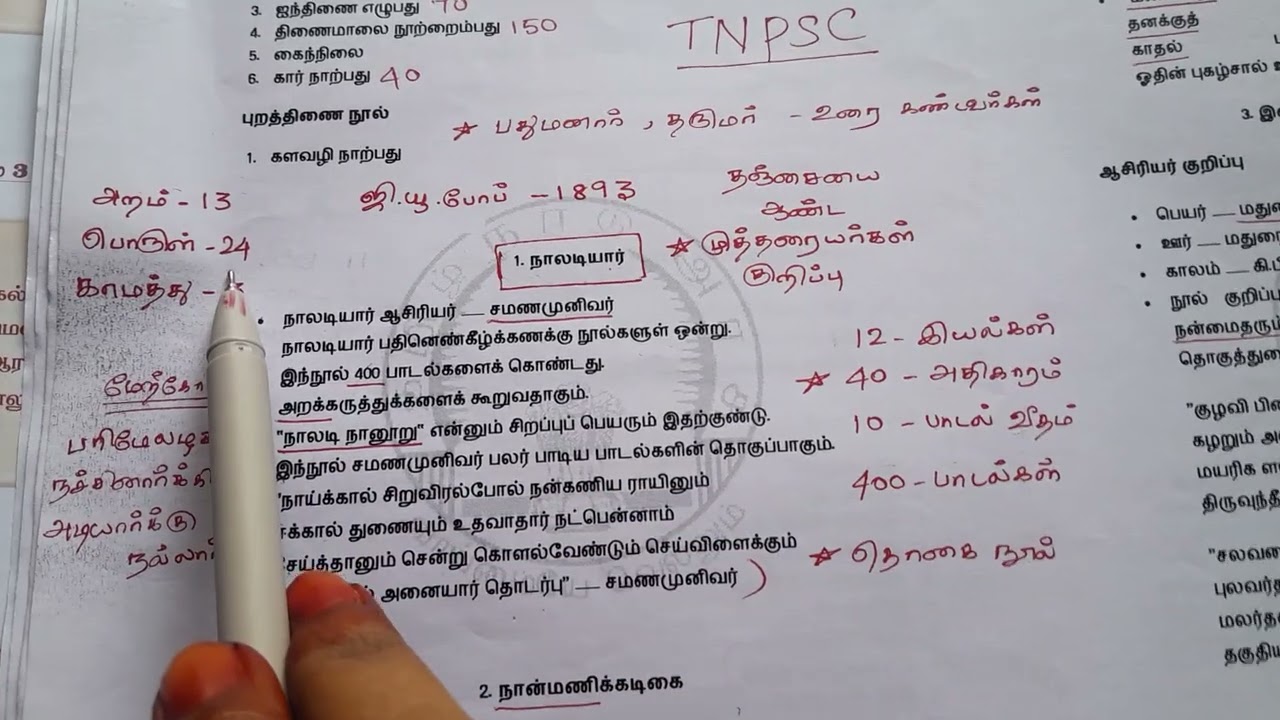 3. ஐந்திணை எழுபது 70
4. திணைமாலை நூற்றைம்பது 150
5. கைந்நிலை
6. கார் நாற்பது 40
TNPSC
புறத்திணை நூல்
★ பதுமனார், தருமர் - உரை கண்டவர்கள்
1. களவழி நாற்பது
அறம் - 13
பொருள் - 24
காமத்து -
ஜி.யூ.போப் - 1893
தஞ்சையை
ஆண்ட
★ முத்தரையர்கள்
குறிப்பு
1. நாலடியார்
• நாலடியார் ஆசிரியர் __ சமணமுனிவர்
நாலடியார் பதினெண்கீழ்க்கணக்கு நூல்களுள் ஒன்று.
இந்நூல் 400 பாடல்களைக் கொண்டது.
அறக்கருத்துக்களைக் கூறுவதாகும்.
"நாலடி நானூறு" என்னும் சிறப்புப் பெயரும் இதற்குண்டு.
இந்நூல் சமணமுனிவர் பலர் பாடிய பாடல்களின் தொகுப்பாகும்.
"நாய்க்கால் சிறுவிரல்போல் நன்கணிய ராயினும்
க்கால் துணையும் உதவாதார் நட்பென்னாம்
சய்த்தானும் சென்று கொளல்வேண்டும் செய்விளைக்கும்
அனையார் தொடர்பு" __ சமணமுனிவர்
12 - இயல்கள்
★ 40 - அதிகாரம்
10 - பாடல் வீதம்
400 - பாடல்கள்
★ தொகை நூல்
மேற்கோ
பரிமேலழக
நச்சினார்க்கி
அடியார்க்கு
நல்லார்
2. நான்மணிக்கடிகை
தனக்குத்
காதல்
ஓதின் புகழ்சால்
3. இ
ஆசிரியர் குறிப்பு
• பெயர் __ மதுரை
• ஊர் __ மதுரை
• காலம் __ கி.பி
• நூல் குறிப்பு
நன்மைதரும்
தொகுத்துரை
"குழவி
கழறும்
மயரிக
திருவுந்தீ
"சலவ
புலவர்த
மலர்தன
தகுதிய